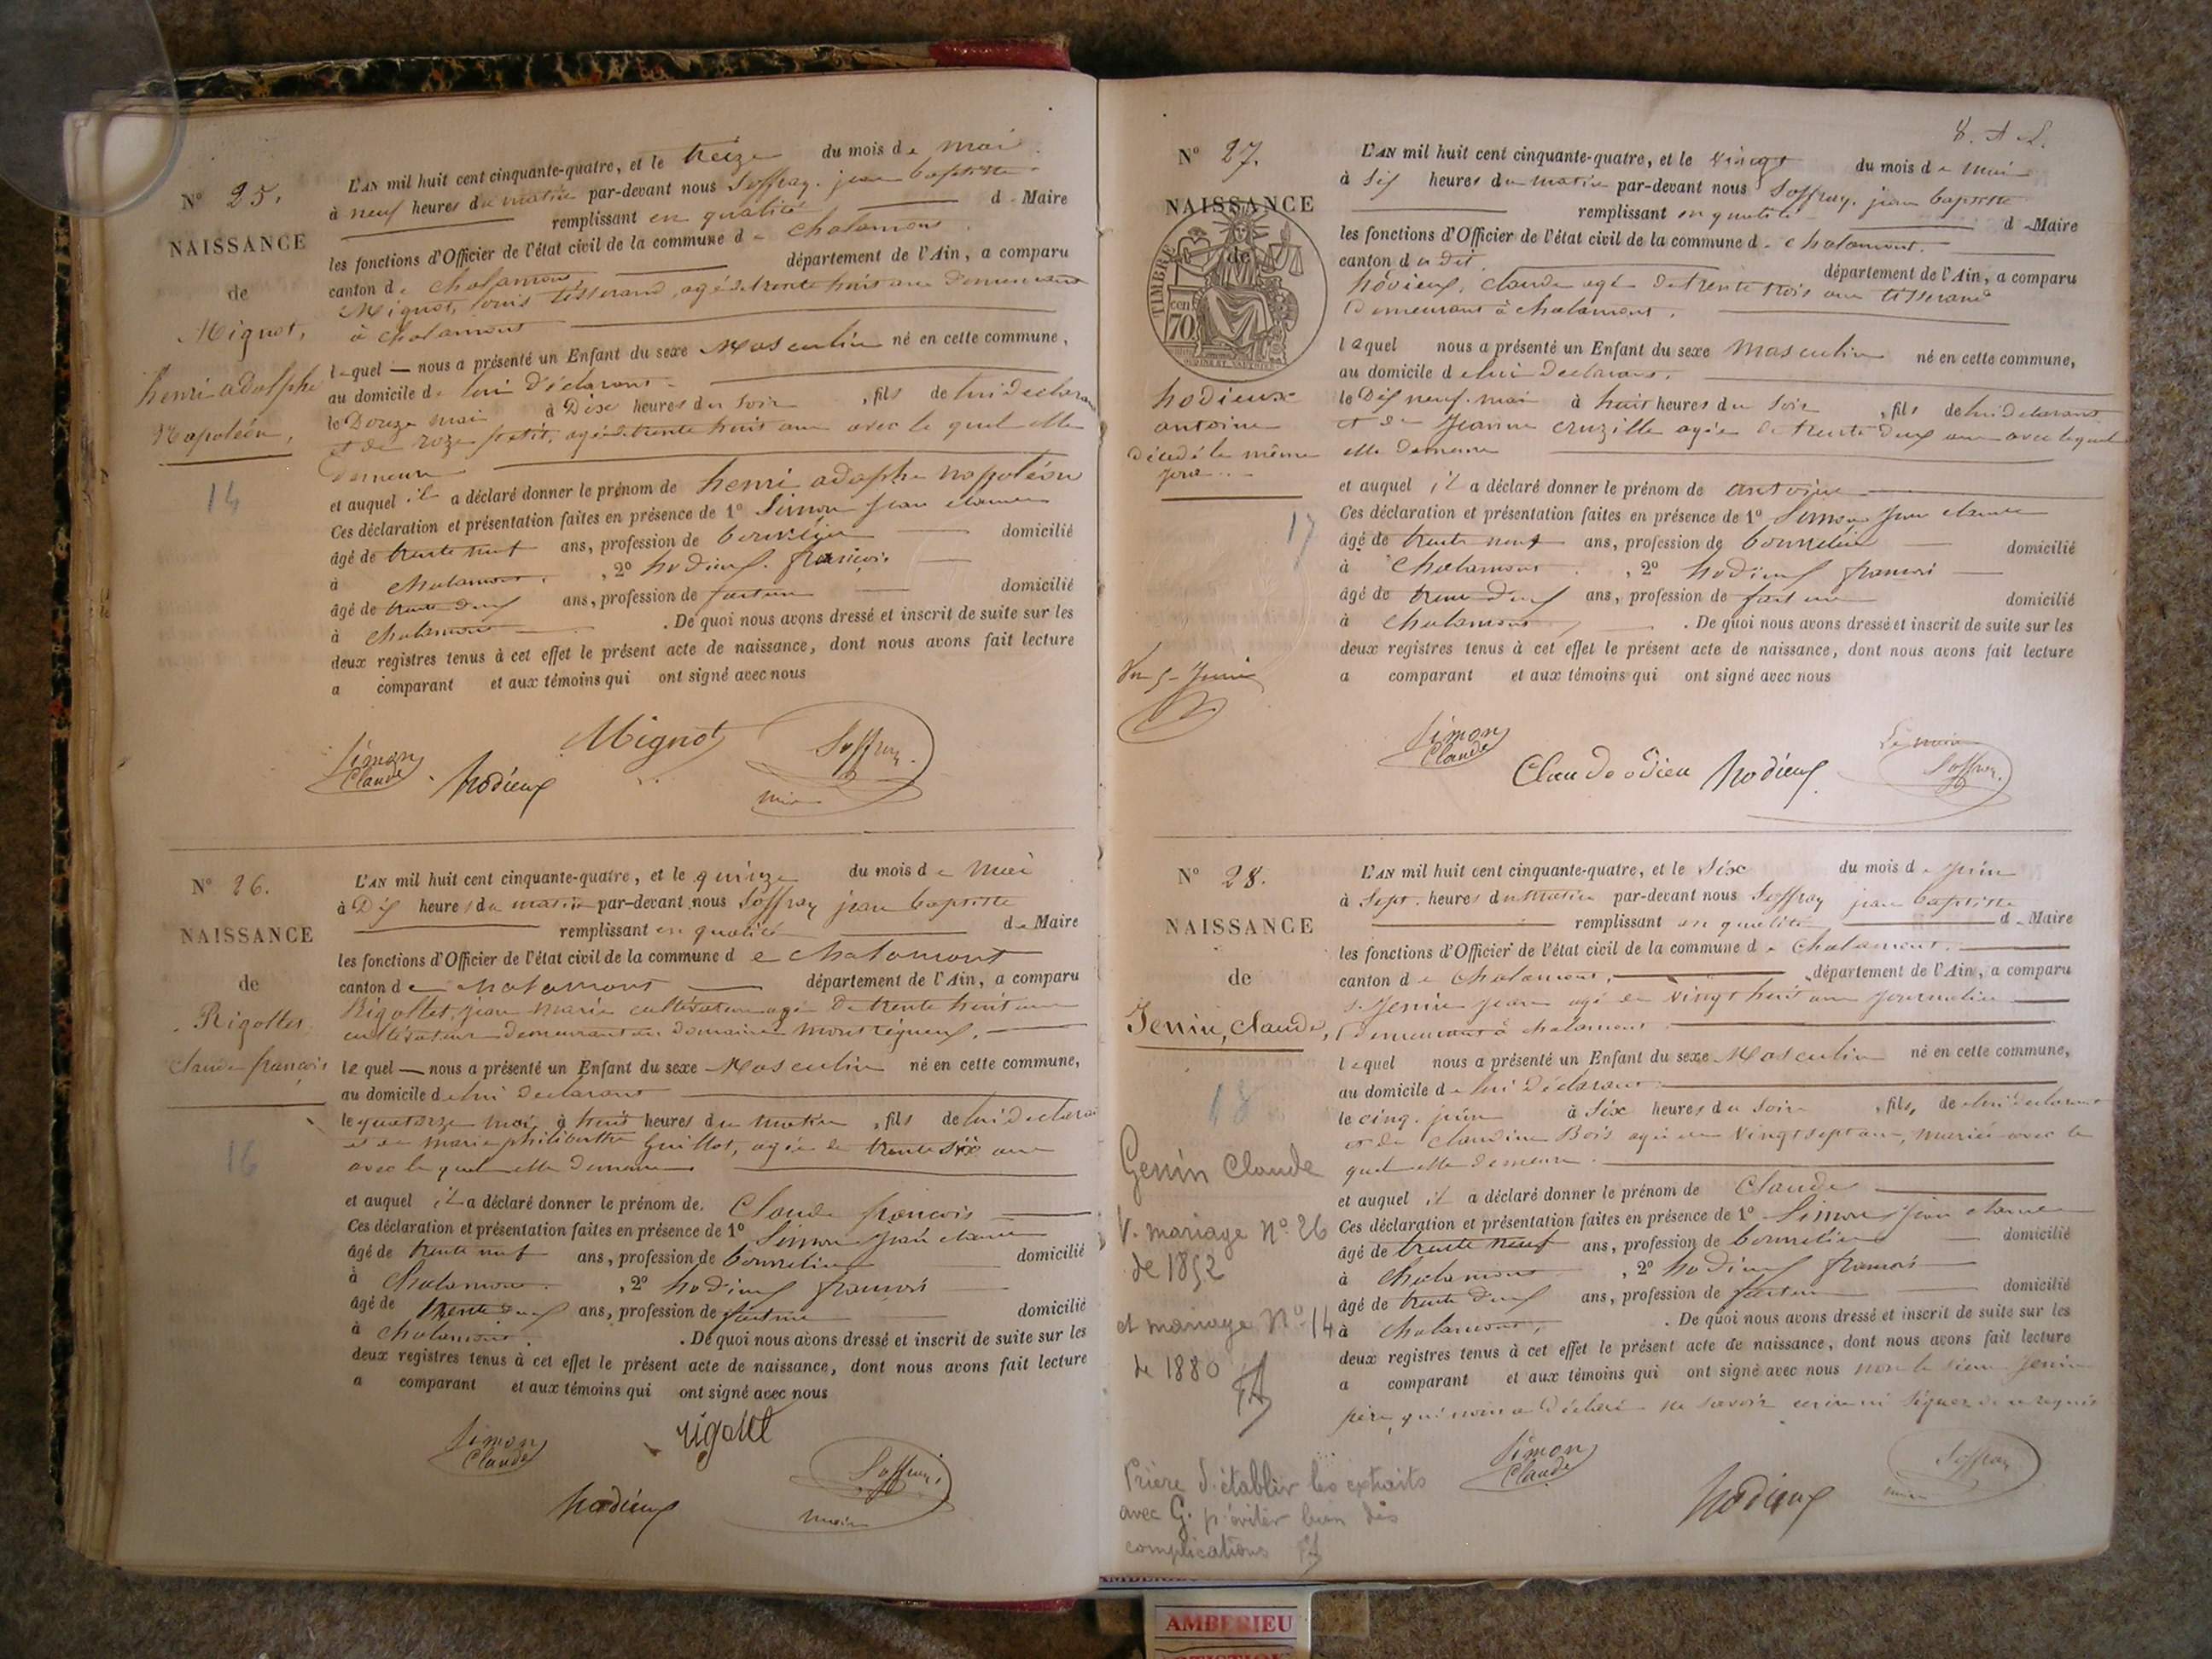 N° 25.
NAISSANCE
de
Mignot,
henri adolphe
Napoléon,
14
L'AN mil huit cent cinquante-quatre, et le treize du mois de mai
à neuf heures du matin par-devant nous Soffray jean baptiste
remplissant en qualité de Maire
les fonctions d'Officier de l'état civil de la commune de chalamont
canton de chalamont département de l'Ain, a comparu
Mignot, louis tisserand, agé de trente huit ans demeurant
à chalamont
lequel nous a présenté un Enfant du sexe Masculin né en cette commune,
au domicile de lui déclarant
le Douze mai à Dix heures du soir, fils de lui declarant
et de roze petit, agée de trente huit ans avec le quel elle
demeure
et auquel il a déclaré donner le prénom de henri adolphe napoléon
Ces déclaration et présentation faites en présence de 1° Simon jean claude
âgé de trente neuf ans, profession de bourrelier domicilié
à chalamont, 2° hodieux françois
âgé de trente deux ans, profession de facteur domicilié
à chalamont. De quoi nous avons dressé et inscrit de suite sur les
deux registres tenus à cet effet le présent acte de naissance, dont nous avons fait lecture
a comparant et aux témoins qui ont signé avec nous
Mignot Soffray
Simon
Claude hodieux
maire
N° 26.
NAISSANCE
de
Rigollet
claude françois
16
L'AN mil huit cent cinquante-quatre, et le quinze du mois de Mai
à Dix heures du matin par-devant nous Soffray jean baptiste
remplissant en qualité de Maire
les fonctions d'Officier de l'état civil de la commune de chalamont
canton de chalamont département de l'Ain, a comparu
Rigollet, jean marie cultivateur agé de trente huit ans
cultivateur demeurant au domaine
lequel nous a présenté un Enfant du sexe Masculin né en cette commune,
au domicile de lui declarant
le quatorze mai à huit heures du matin, fils de lui declarant
et de marie philiberthe Guillot, agée de trente six ans
avec le quel elle demeure
et auquel il a déclaré donner le prénom de. Claude françois
Ces déclaration et présentation faites en présence de 1° Simon jean claude
âgé de trente neuf ans, profession de bourrelier domicilié
à Chalamont, 2° hodieux francois
âgé de trente deux ans, profession de facteur domicilié
à chalamont. De quoi nous avons dressé et inscrit de suite sur les
deux registres tenus à cet effet le présent acte de naissance, dont nous avons fait lecture
a comparant et aux témoins qui ont signé avec nous
Simon
Claude rigollet
Soffray
hodieux maire
N° 27.
NAISSANCE
de
TIMBRE
cen
70
hodieux
antoine
décédé le même
jour
17
Vu 5 Juin
L'AN mil huit cent cinquante-quatre, et le vingt du mois de mai
à Six heures du matin par-devant nous Soffray jean baptiste
remplissant en qualité de Maire
les fonctions d'Officier de l'état civil de la commune de chalamont.
canton du dit département de l'Ain, a comparu
hodieux, claude agé de trente trois ans tisserand
Demeurant à chalamont.
lequel nous a présenté un Enfant du sexe Masculin né en cette commune,
au domicile de lui declarant.
le Dix neuf mai à huit heures du soir, fils de lui declarant
et de Jeanne cruzille agée de trente deux ans avec lequel
elle demeure
et auquel il a déclaré donner le prénom de antoine
Ces déclaration et présentation faites en présence de 1° Simon Jean claude
âgé de trente neuf ans, profession de bourrelier domicilié
à Chalamont, 2° hodieux francois
âgé de trente deux ans, profession de facteur domicilié
à chalamont. De quoi nous avons dressé et inscrit de suite sur les
deux registres tenus à cet effet le présent acte de naissance, dont nous avons fait lecture
a comparant et aux témoins qui ont signé avec nous
Simon
Claude Le maire
Claude odieu hodieux Soffray
N° 28.
NAISSANCE
de
Jenin, claude,
18
Genin Claude
V. mariage N° 26
de 1852
et mariage N° 14
de 1880
Prière d'établir les extraits
avec G. p. éviter bien des
complications
L'AN mil huit cent cinquante-quatre, et le Six du mois de juin
à Sept heures du matin par-devant nous Soffray jean baptiste
remplissant en qualité de Maire
les fonctions d'Officier de l'état civil de la commune de Chalamont.
canton de Chalamont, département de l'Ain, a comparu
Jenin jean agé de vingt huit ans journalier
demeurant à chalamont
lequel nous a présenté un Enfant du sexe Masculin né en cette commune,
au domicile de lui Déclarant
le cinq juin à Six heures du soir, fils, de lui declarant
et de Claudine Bois agée de vingt sept ans, mariée avec le
quel elle demeure
et auquel il a déclaré donner le prénom de Claude
Ces déclaration et présentation faites en présence de 1° Simon jean claude
âgé de trente neuf ans, profession de bourrelier domicilié
à Chalamont, 2° hodieux francois
âgé de trente deux ans, profession de facteur domicilié
à chalamont, De quoi nous avons dressé et inscrit de suite sur les
deux registres tenus à cet effet le présent acte de naissance, dont nous avons fait lecture
a comparant et aux témoins qui ont signé avec nous non le sieur Jenin
père qui nous a déclaré ne savoir écrire ni signer de ce requis
Simon
Claude
Soffray
hodieux maire
AMBERIEU